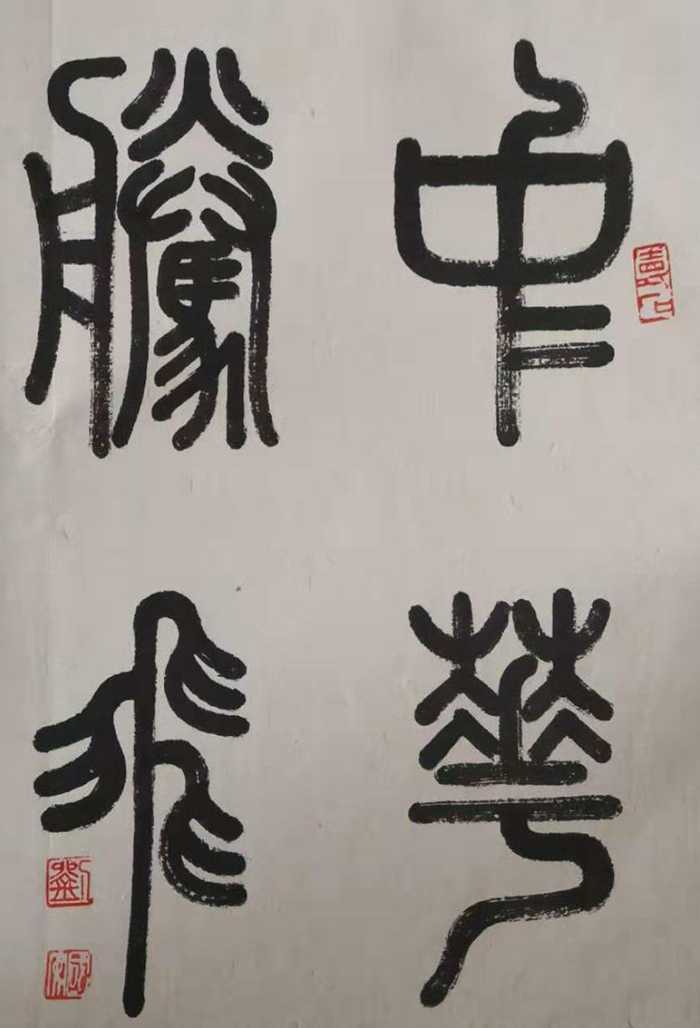 中華
騰飛